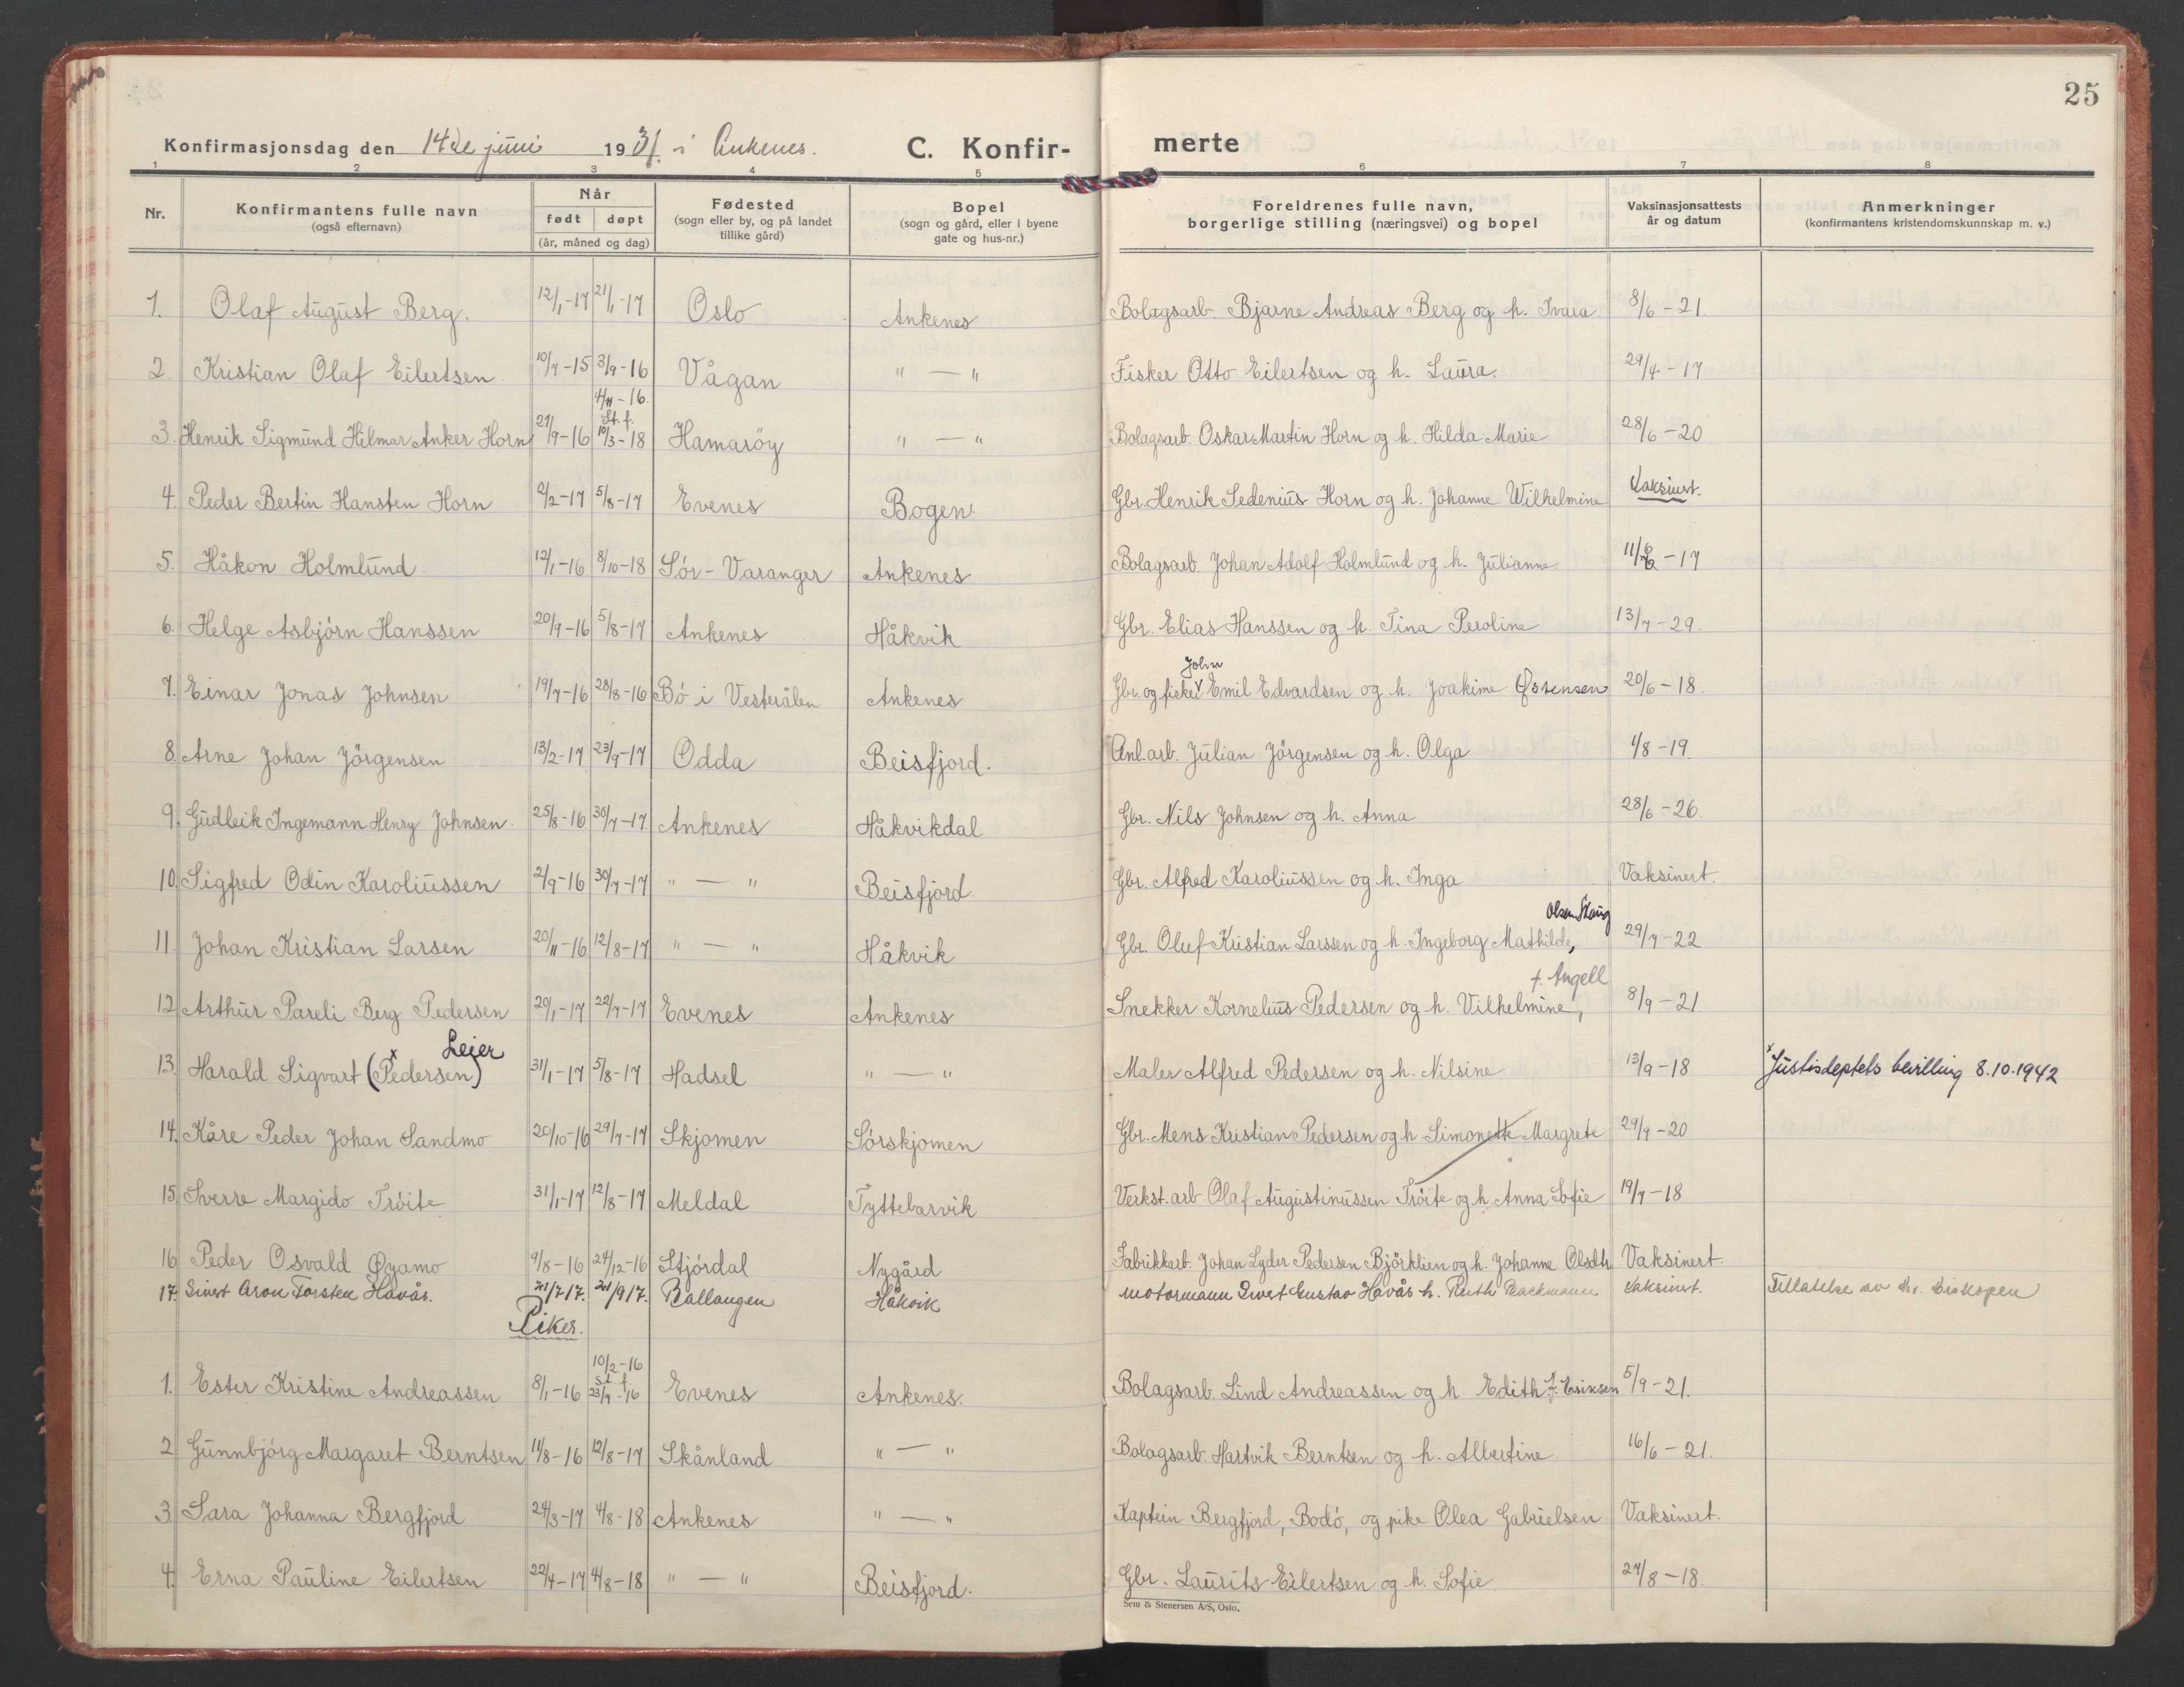 25
Konfirmasjonsdag den 14de juni 1931 i Ankenes. C. Konfir- merte
1 2 3 4 5 6 7 8
Nr. Konfirmantens fulle navn (også efternavn) Når født døpt (år, måned og dag) Fødested (sogn eller by, og på landet tillike gård) Bopel (sogn og gård, eller i byene gate og hus-nr.) Foreldrenes fulle navn, borgerlige stilling (næringsvei) og bopel Vaksinasjonsattests år og datum Anmerkninger (konfirmantens kristendomskunnskap m. v.)
1. Olaf August Berg. 12/1-17 21/1-17 Oslo Ankenes Bolagsarb. Bjarne Andreas Berg og h. Ivara 8/6-21.
2. Kristian Olaf Eilertsen 10/7-15 3/9-16 Vågan " — " Fisker Otto Eilertsen og h. Laura. 29/4-17
4/11-16. St. f.
3. Henrik Sigmund Hilmar Anker Horn 27/9-16 10/3-18 Hamaröy " — " Bolagsarb. Oskar Martin Horn og h. Hilda Marie 28/6-20
4. Peder Bertin Hansten Horn 2/2-17 5/8-17 Evenes Bogen Gbr. Henrik Sedenius Horn og h. Johanne Wilhelmine Vaksinert.
5. Håkon Holmlund 12/1-16 8/10-18 Sör-Varanger Ankenes Bolagsarb. Johan Adolf Holmlund og h. Julianne 11/6-17
6. Helge Asbjörn Hanssen 20/9-16 5/8-17 Ankenes Håkvik Gbr. Elias Hanssen og h. Tina Peroline 13/7-29.
John
7. Einar Jonas Johnsen 19/7-16 28/8-16 Bö i Vesterålen Ankenes Gbr. og fisker Emil Edvardsen og h. Joakime Sørensen 20/6-18.
8. Arne Johan Jörgensen 13/2-17 23/9-17 Odda Beisfjord. Anl.arb. Julian Jörgensen og h. Olga 1/8-19.
9. Gudleik Ingemann Henry Johnsen 25/8-16 30/7-17 Ankenes Håkvikdal Gbr. Nils Johnsen og h. Anna 28/6-26.
10. Sigfred Odin Karoliussen 2/9-16 30/7-17 " — " Beisfjord. Gbr. Alfred Karoliussen og h. Inga Vaksinert.
Olsen Skaug
11. Johan Kristian Larsen 20/11-16 12/8-17 " — " Håkvik Gbr. Oluf Kristian Larssen og h. Ingeborg Mathilde, 29/7-22
f. Angell
12. Arthur Pareli Berg Pedersen 20/1-17 22/7-17 Evenes Ankenes Snekker Kornelius Pedersen og h. Vilhelmine, 8/9-21.
Leier
13. Harald Sigvart (Pedersen) x 31/1-17 5/8-17 Hadsel " — " Maler Alfred Pedersen og h. Nilsine 13/9-18 x Justisdeptets bevilling 8.10.1942
14. Kåre Peder Johan Sandmo 20/10-16 29/7-17 Skjomen Sörskjomen Gbr. Mens Kristian Pedersen og h Simonette Margrete 29/9-20
15. Sverre Margido Tröite 31/1-17 12/8-17 Meldal Tyttebarvik Verkst. arb. Olaf Augustinussen Tröite og h. Anna Sofie 19/7-18
16 Peder Osvald Øyamo 9/8-16 24/12-16 Stjördal Nygård Fabrikkarb. Johan Lyder Pedersen Björklien og h. Johanne Olsdtr Vaksinert.
17. Sivert Aron Torsten Havås. 21/7 17. 21/9 17. Ballangen Håkvik Motormann Sivert Gustav Havås h. Ruth Backmann Vaksinert. Tillatelse av hr. biskopen
Piker.
10/2-16 St. f.
1. Ester Kristine Andreassen 8/1-16 23/7-16 Evenes Ankenes. Bolagsarb. Lind Andreassen og h. Edith f. Eriksen 5/9-21.
2. Gunnbjörg Margaret Berntsen 11/8-16 12/8-17 Skånland " — " Bolagsarb. Hartvik Berntsen og h. Albertine 16/6-21.
3. Sara Johanna Bergfjord 24/3-17 4/8-18 Ankenes " — " Kaptein Bergfjord, Bodö, og pike Olea Gabrielsen Vaksinert.
4. Erna Pauline Eilertsen 22/4-17 4/8-18 " — " Beisfjord. Gbr. Laurits Eilertsen og h. Sofie 27/8-18.
Sem & Stenersen A/S, Oslo.